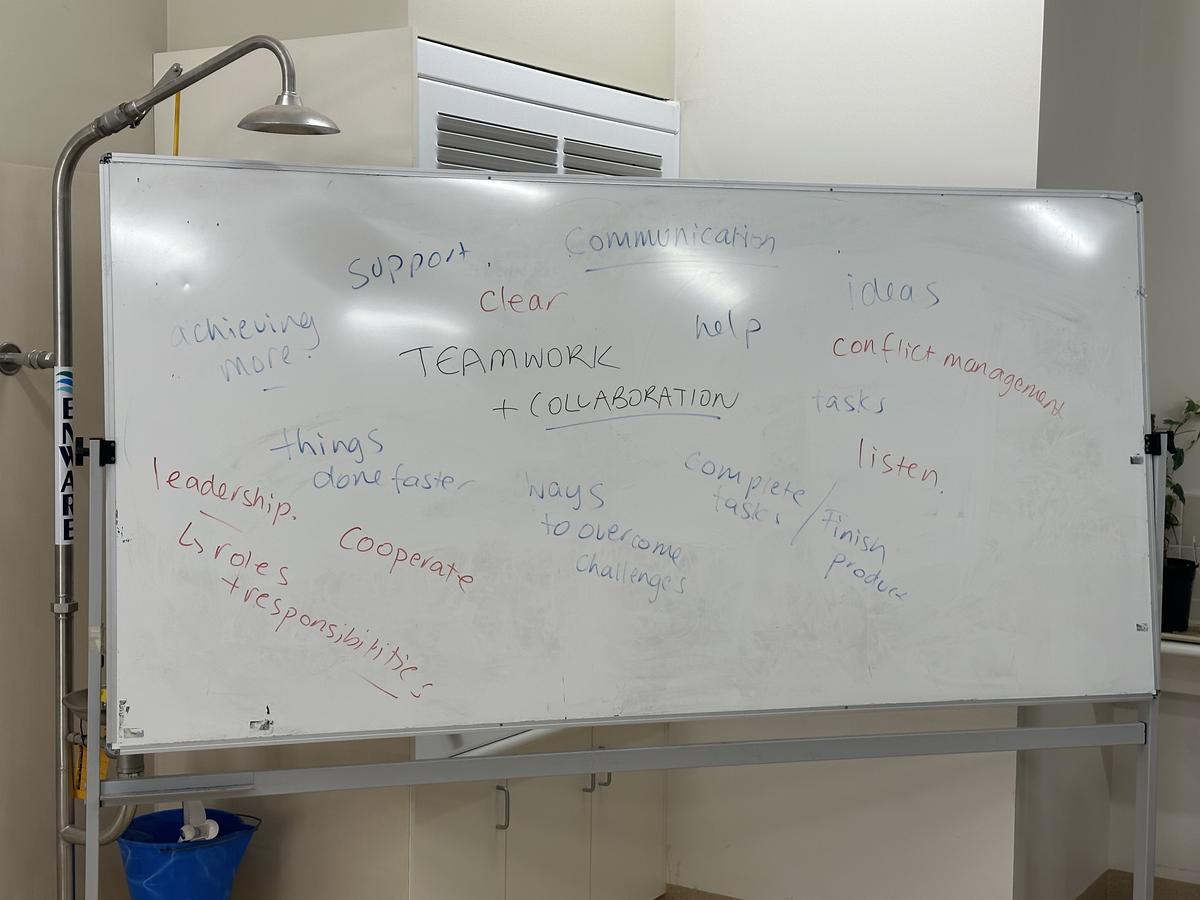 Communication
support.
ideas
clear
help
achieving
more.
conflict management
TEAMWORK
+ COLLABORATION
tasks
things
done faster
listen.
leadership.
ways
to overcome
challenges
complete
tasks /
Finish
product
Cooperate
↳ roles
+ responsibilities
ENWARE